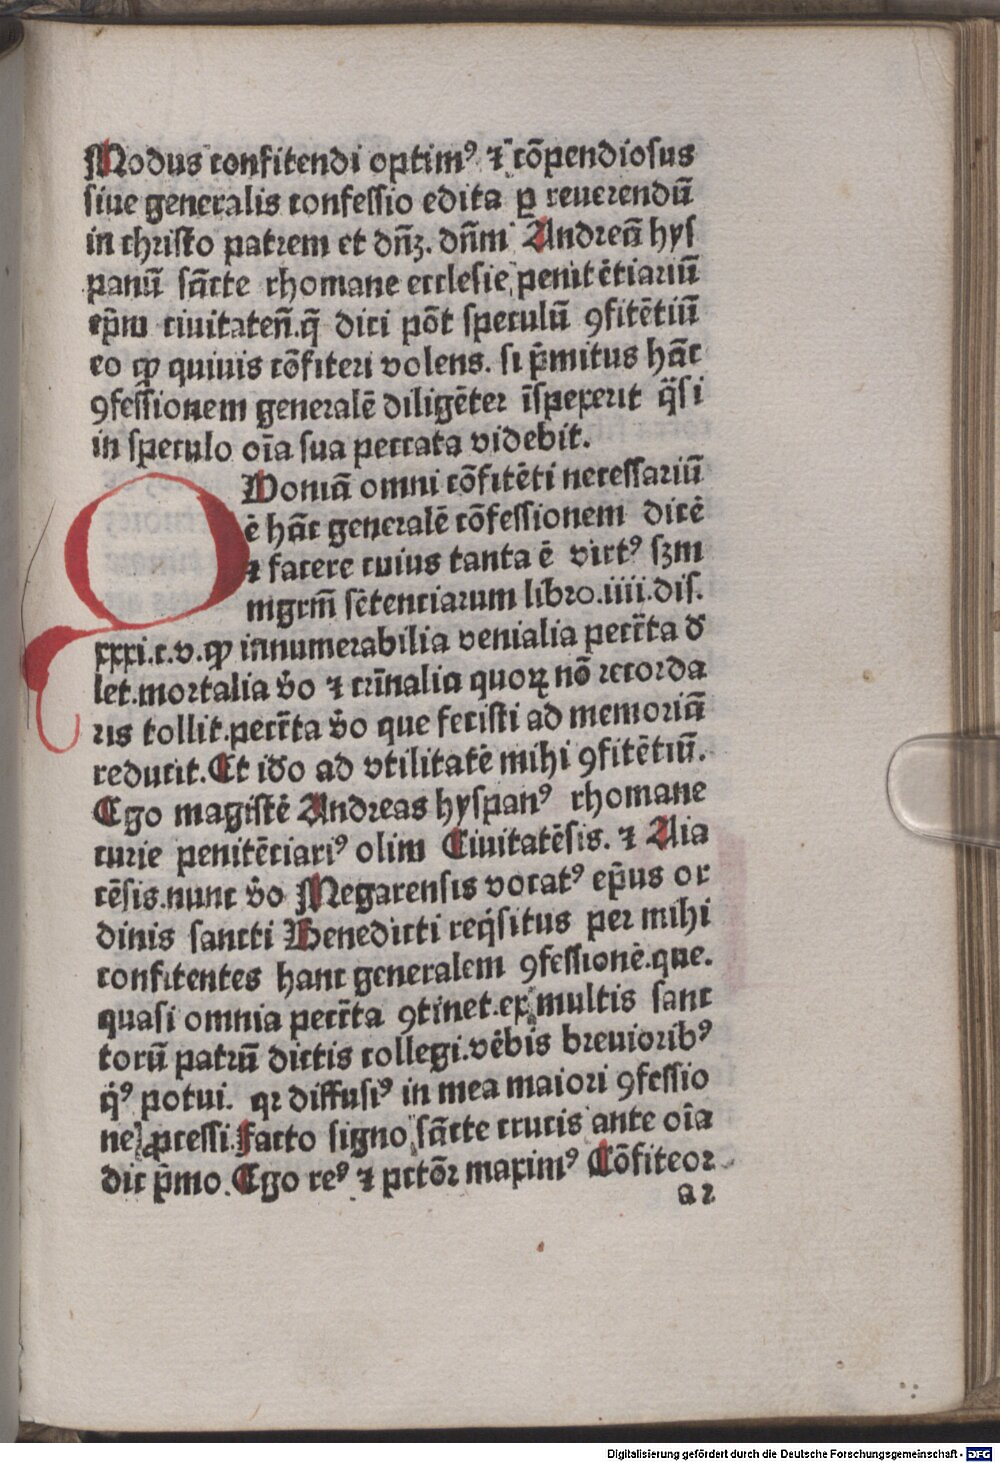 Modus confitendi optimꝰ ⁊ cõpendiosus
siue generalis confessio edita ꝑ reuerendũ
in christo patrem et dñꝫ. dñm Andreã hys
panũ sãcte rhomane ecclesie penitẽtiariũ
ep̃m ciuitateñ.q̃ dici põt speculũ ꝯfitẽtiũ
eo ꝙ quiuis cõfiteri volens. si p̃mitus hãc
ꝯfessionem generalẽ diligẽter ĩspexerit q̃si
in speculo oĩa sua peccata videbit.
QVoniã omni cõfitẽti necessariũ
ẽ hãc generalẽ cõfessionem dicẽ
⁊ facere cuius tanta ẽ virtꝰ sꝫm
mgrm̃ sẽtenciarum libro.iiii.dis.
xxxi.c.v.ꝙ innumerabilia venialia pecc̃ta d̕
let.mortalia v̕o ⁊ crĩnalia quoꝝ nõ recorda
ris tollit.pecc̃ta v̕o que fecisti ad memoriã
reducit.Et id̕o ad vtilitatẽ mihi ꝯfitẽtiũ.
Ego magistẽ Andreas hyspanꝰ rhomane
curie penitẽciariꝰ olim Ciuitatẽsis. ⁊ Aia
cẽsis.nunc v̕o Megarensis vocatꝰ ep̃us or
dinis sancti Benedicti req̃situs per mihi
confitentes hanc generalem ꝯfessionẽ.que.
quasi omnia pecc̃ta ꝯtinet.ex multis sanc
torũ patrũ dictis collegi.vẽbis breuioribꝰ
q̃ꝰ potui. qr diffusiꝰ in mea maiori ꝯfessio
ne ꝓcessi.Facto signo sãcte crucis ante oĩa
dic p̃mo.Ego reꝰ ⁊ pctõr maximꝰ Cõfiteor
a2
Digitalisierung gefördert durch die Deutsche Forschungsgemeinschaft - DFG